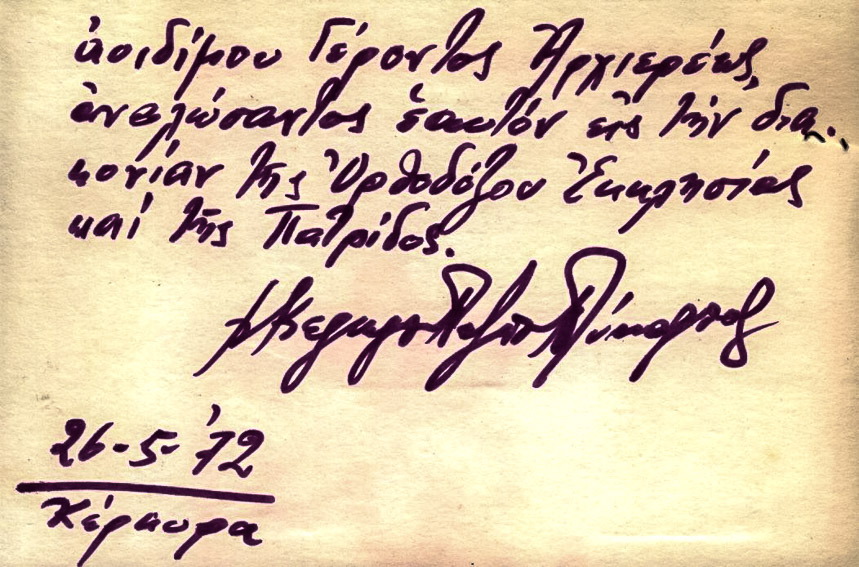 ἀοιδίμου Γέροντος Ἀρχιερέως,
ἀναλώσαντος ἑαυτόν εἰς τήν δια-
κονίαν τῆς Ὀρθοδόξου Ἐκκλησίας
καί τῆς Πατρίδος.
† Κερκύρας Παξῶν Πολύκαρπος
26-5-'72
Κέρκυρα